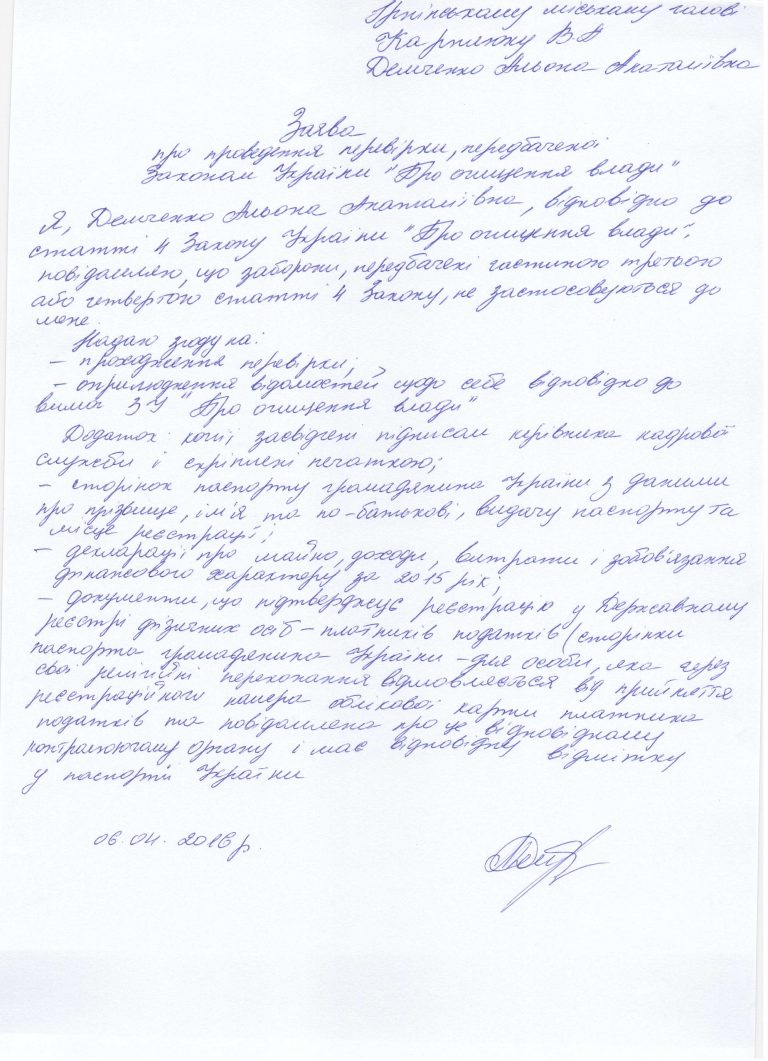 Ірпінському міському голові
Карплюку В А
Демченко Альона Анатоліївна
Заява
про проведення перевірки, передбаченої
Законом України "Про очищення влади"
Я, Демченко Альона Анатоліївна, відповідно до
статті 4 Закону України "Про очищення влади",
повідомляю, що заборони, передбачені частиною третьою
або четвертою статті 4 Закону, не застосовуються до
мене.
Надаю згоду на:
– проходження перевірки;
– оприлюднення відомостей щодо себе відповідно до
вимог ЗУ "Про очищення влади"
Додаток: копії, засвідчені підписом керівника кадрової
служби і скріплені печаткою;
– сторінок паспорту громадянина України з даними
про прізвище, ім'я та по-батькові, видачу паспорту та
місце реєстрації;
– декларації про майно, доходи, витрати і зобов'язання
фінансового характеру за 2015 рік;
– документи, що підтверджує реєстрацію у Державному
реєстрі фізичних осіб – платників податків (сторінки
паспорта громадянина України – для особи, яка через
свої релігійні переконання відмовляється від прийняття
реєстраційного номера облікової картки платника
податків та повідомлена про це відповідному
контролюючому органу і має відповідну відмітку
у паспорті України
06.04.2016 р.